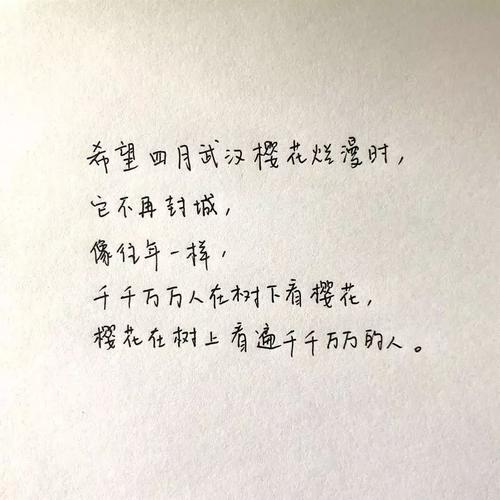 希望四月武汉樱花烂漫时，
它不再封城，
像往年一样，
千千万万人在树下看樱花，
樱花在树上看遍千千万万的人。